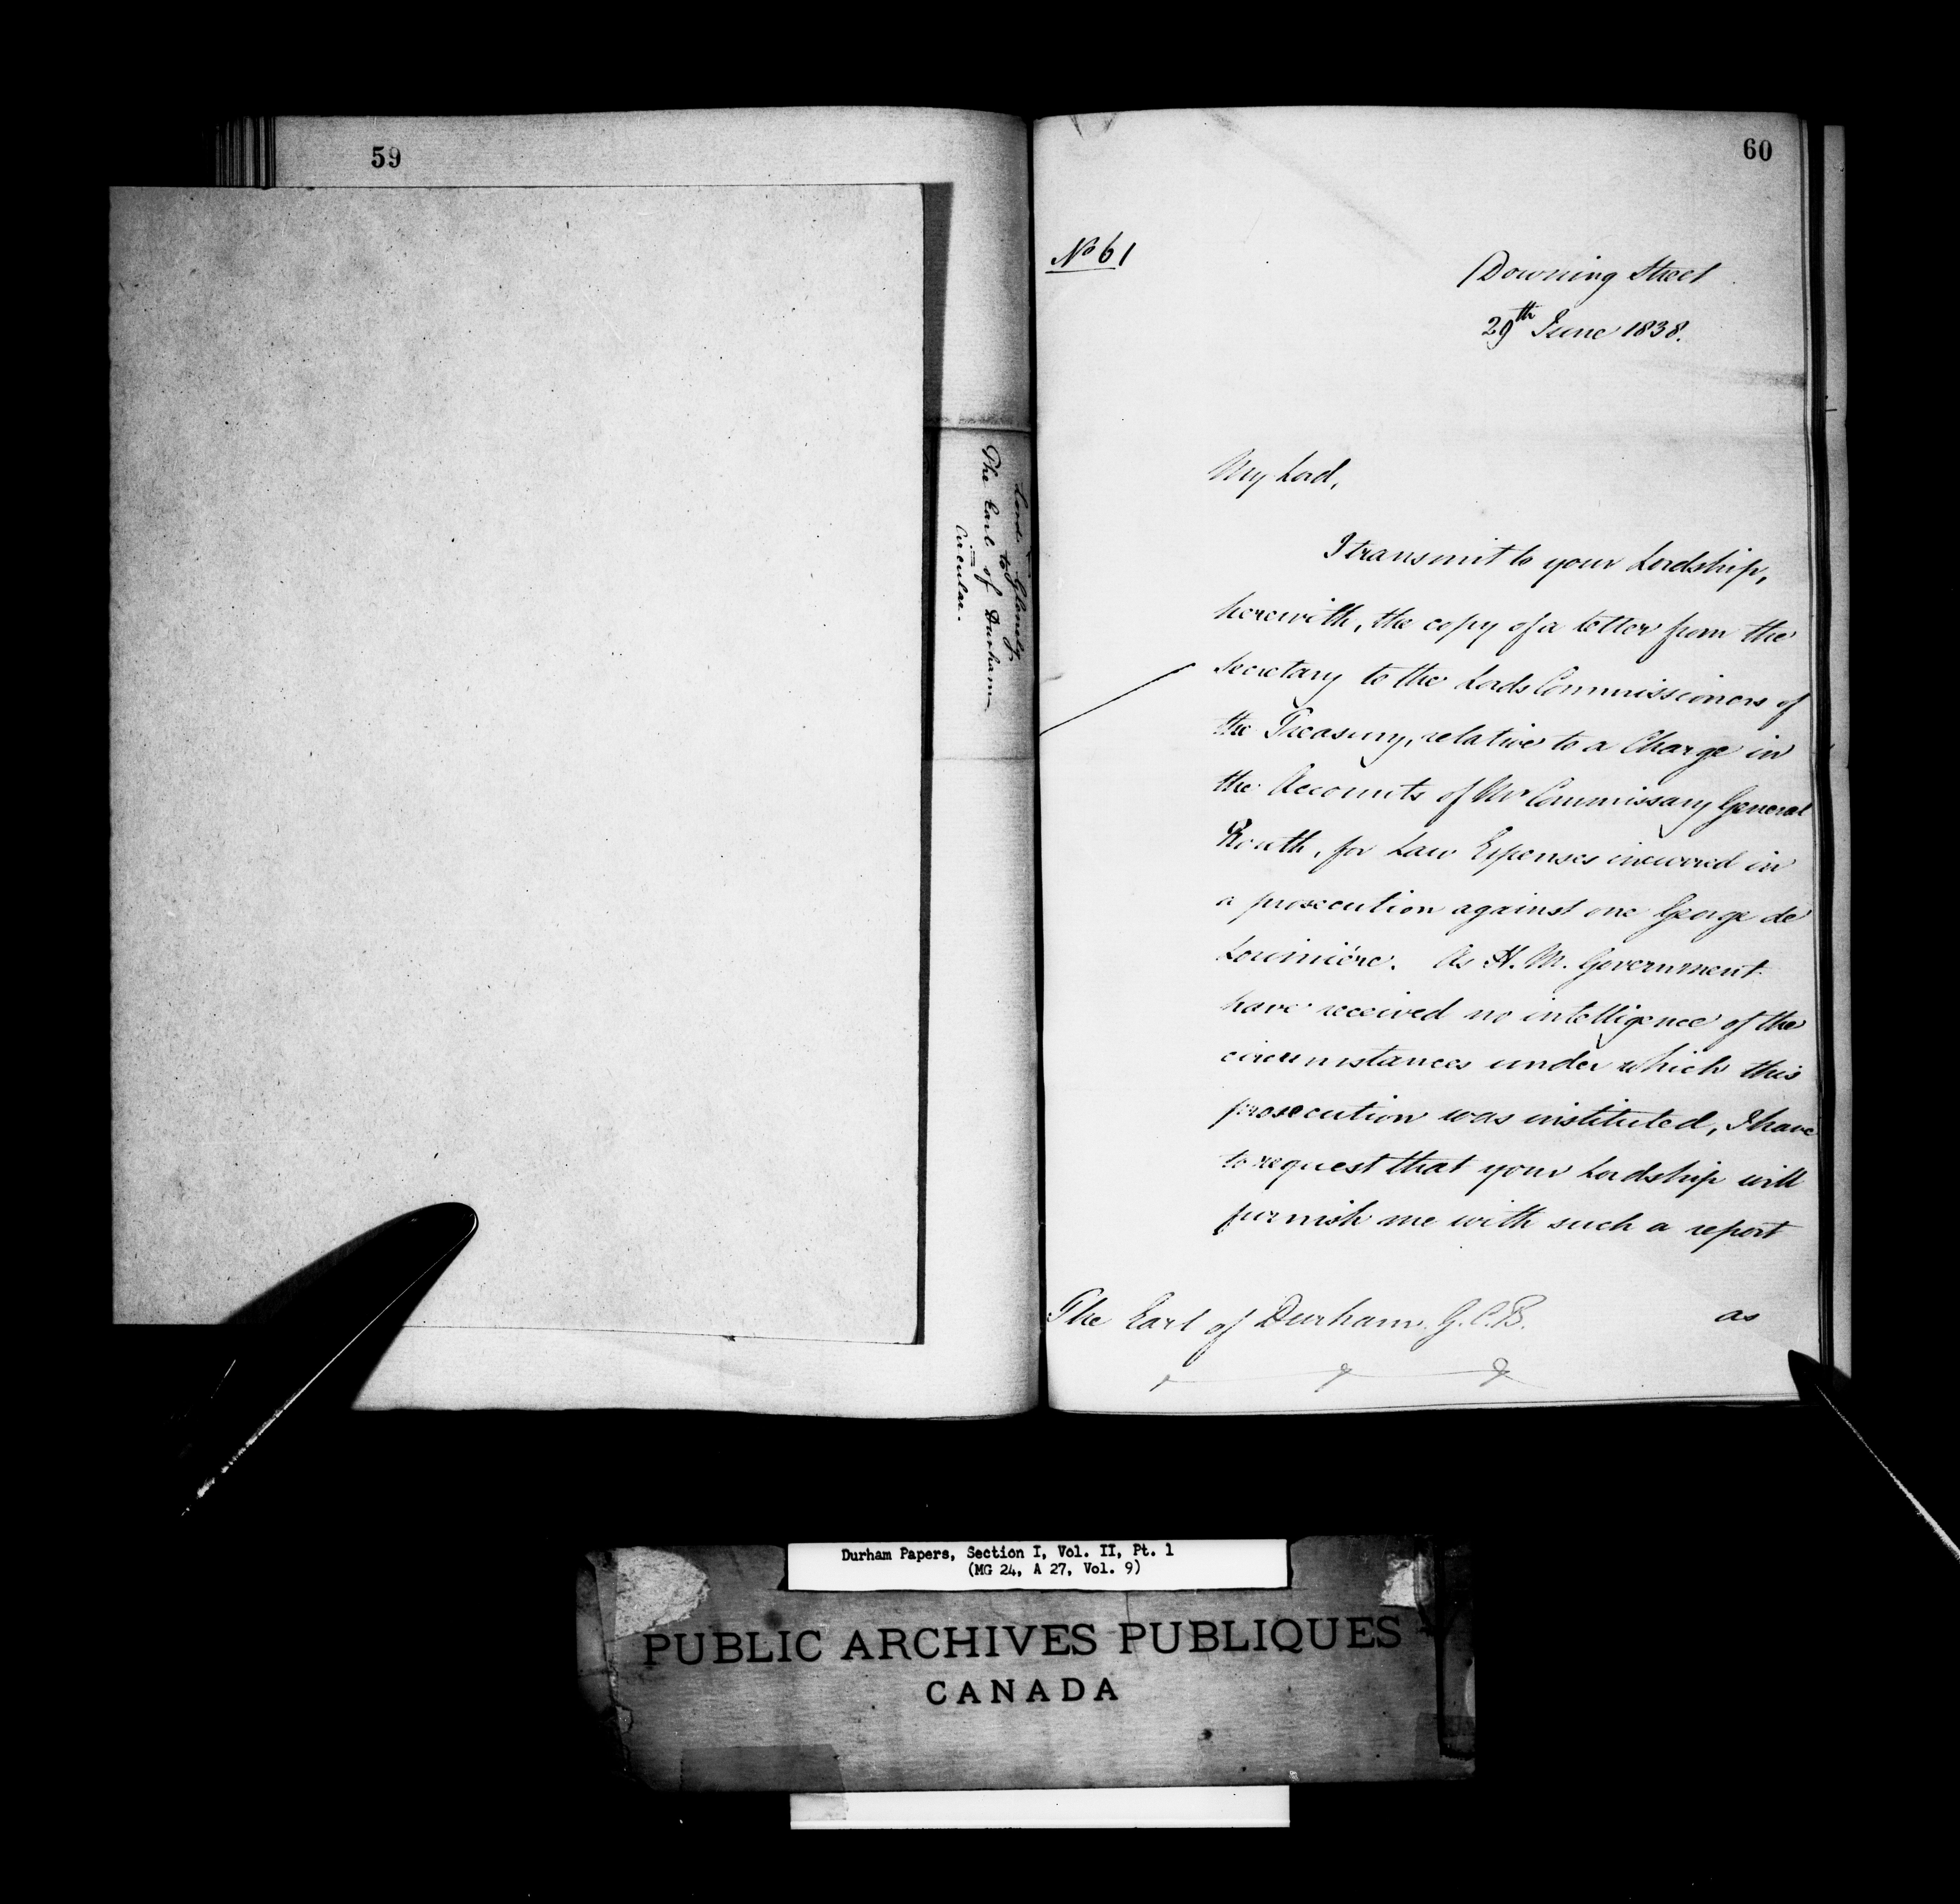 59
Lord Glenelg
to
The Earl of Durham
Circular.
60
No 61
Downing Street
29th June 1838.
My Lord,
I transmit to your Lordship,
herewith, the copy of a letter from the
Secretary to the Lords Commissioners of
the Treasury, relative to a Charge in
the Accounts of Mr Commissary General
Routh, for Law Expenses incurred in
a prosecution against one George de
Lorimière. As H. M. Government
have received no intelligence of the
circumstances under which this
prosecution was instituted, I have
to request that your Lordship will
furnish me with such a report
as
The Earl of Durham. G.C.B.
Durham Papers, Section I, Vol. II, Pt. 1
(MG 24, A 27, Vol. 9)
PUBLIC ARCHIVES PUBLIQUES
CANADA